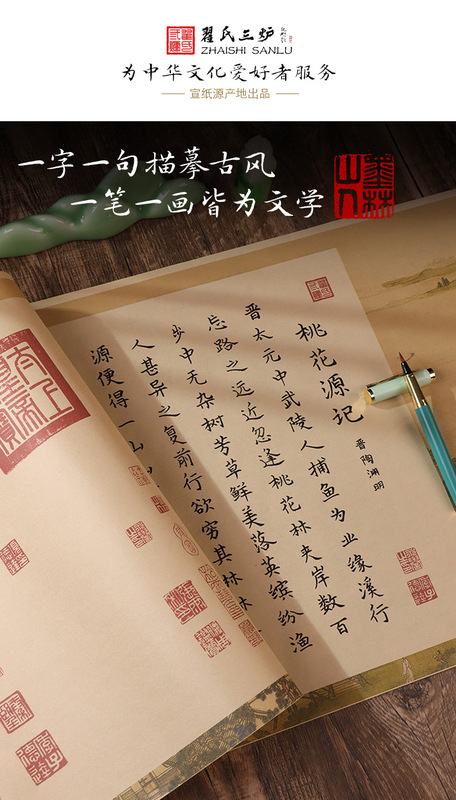 翟氏三炉
ZHAISHI SANLU
为中华文化爱好者服务
宣纸源产地出品
一字一句描摹古风
一笔一画皆为文学
墨林山人
桃花源记
晋陶渊明
晋太元中武陵人捕鱼为业缘溪行
忘路之远近忽逢桃花林夹岸数百
步中无杂树芳草鲜美落英缤纷渔
人甚异之复前行欲穷其林林
源便得一山